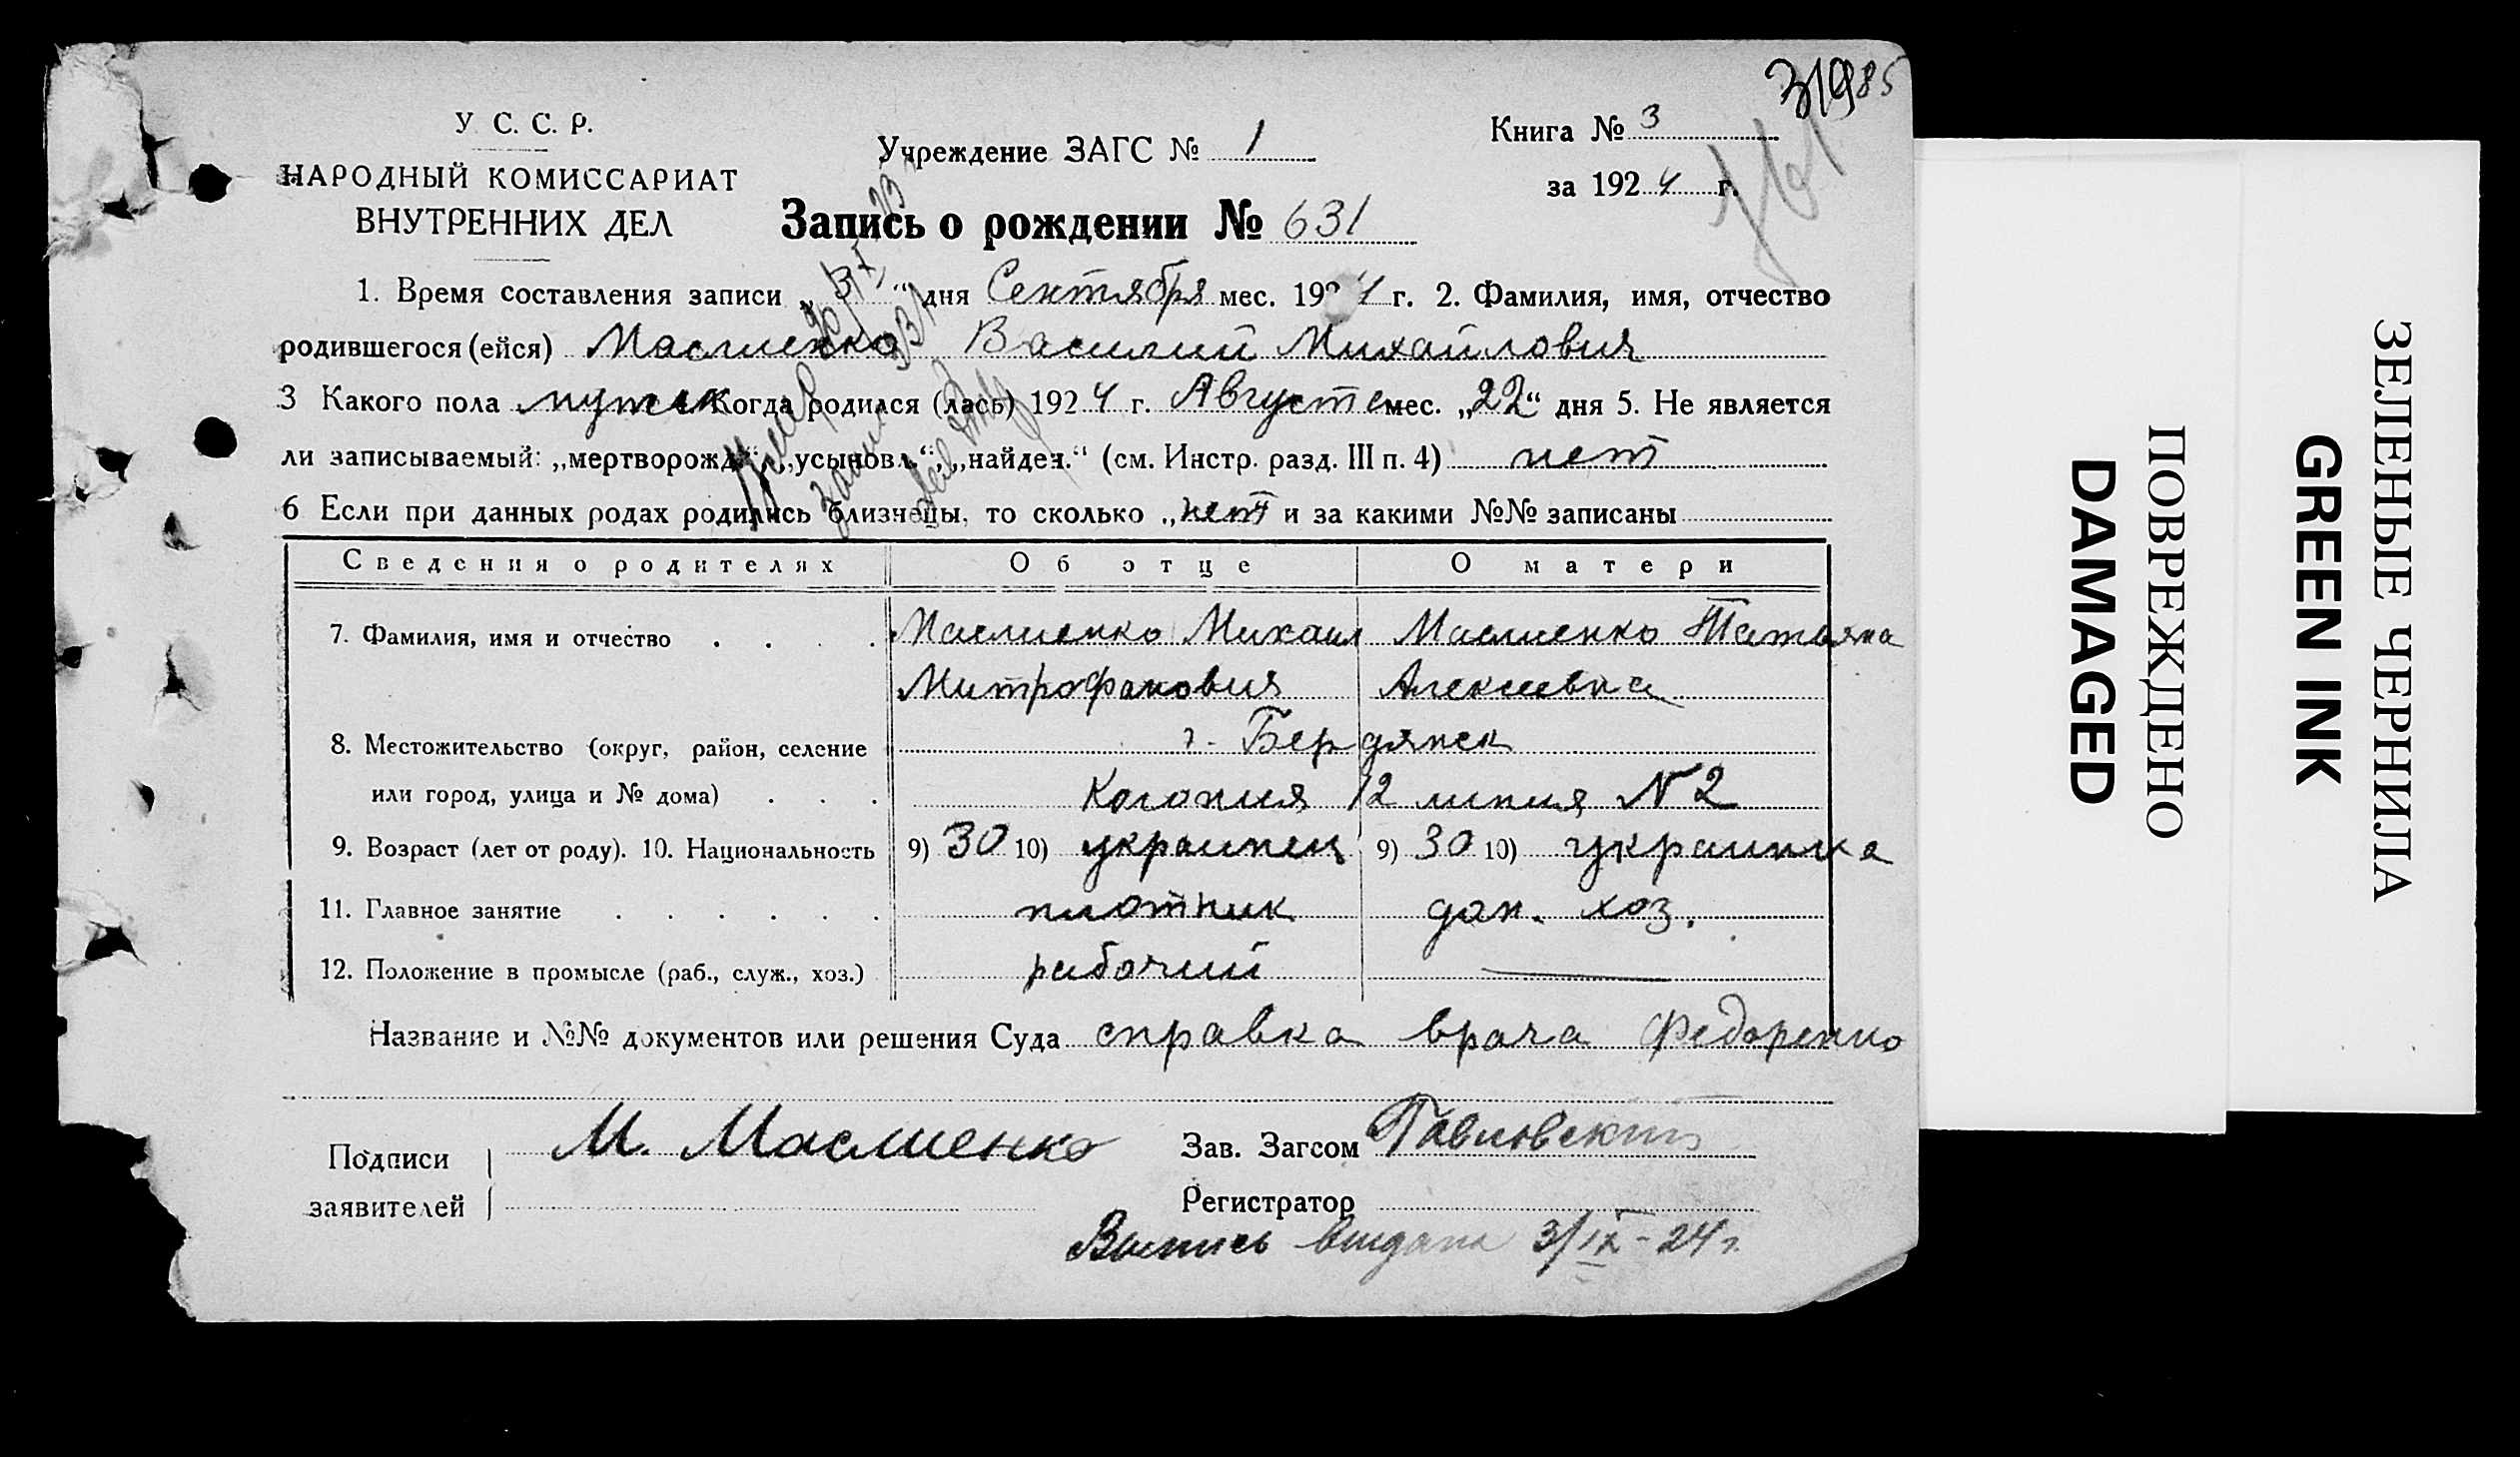 У. С. С. Р.
НАРОДНЫЙ КОМИССАРИАТ
ВНУТРЕННИХ ДЕЛ
Учреждение ЗАГС № 1
Книга № 3
за 1924 г.
Запись о рождении № 631
1. Время составления записи „3“ дня Сентября мес. 1924 г. 2. Фамилия, имя, отчество
родившегося (ейся) Маслиенко Василий Михайлович
3 Какого пола мужск Когда родился (лась) 1924 г. Августа мес. „22“ дня 5. Не является
ли записываемый: „мертворожд“, „усыновл.“, „найден.“ (см. Инстр. разд. III п. 4) нет
6 Если при данных родах родились близнецы, то сколько „нет и за какими №№ записаны
Сведения о родителях Об отце О матери
7. Фамилия, имя и отчество . . . . Маслиенко Михаил Маслиенко Татьяна
Митрофанович Алексеевна
8. Местожительство (округ, район, селение г. Бердянск
или город, улица и № дома) . . . Колония 12 линия N 2
9. Возраст (лет от роду). 10. Национальность 9) 30 10) украинец 9) 30 10) украинка
11. Главное занятие . . . . . . плотник дом. хоз.
12. Положение в промысле (раб., служ., хоз.) рабочий
Название и №№ документов или решения Суда справка врача Федоренко
Подписи М. Маслиенко Зав. Загсом Павловский
заявителей Регистратор
Выпись выдана 3/IX - 24 г.
ПОВРЕЖДЕНО
DAMAGED
ЗЕЛЕНЫЕ ЧЕРНИЛА
GREEN INK